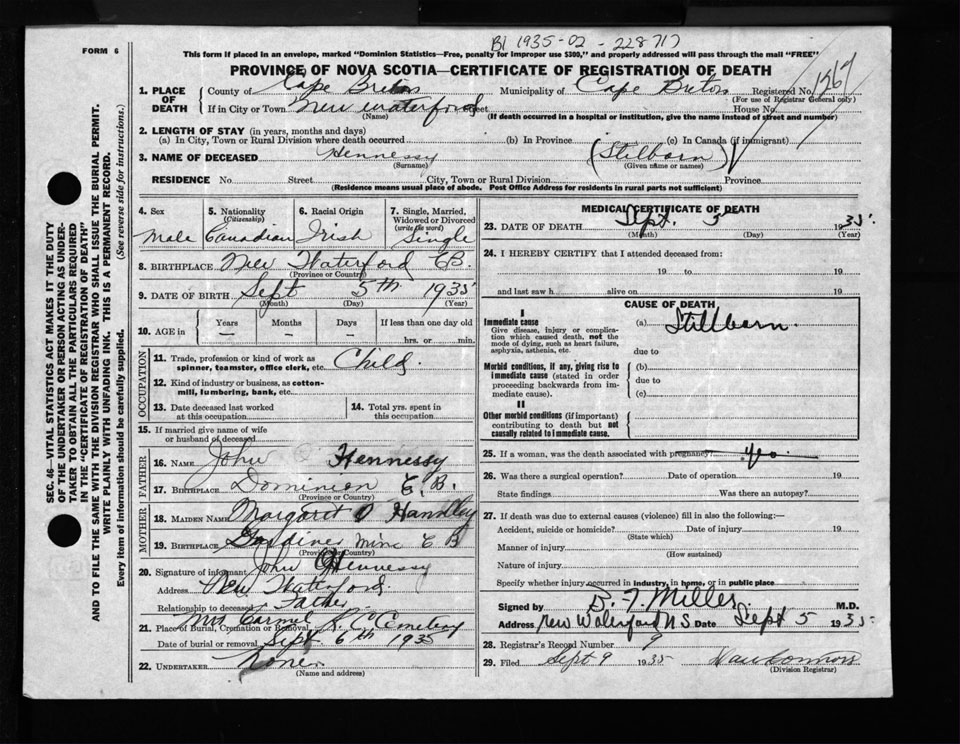 BI 1935-02-228717
FORM 6
This form if placed in an envelope, marked "Dominion Statistics—Free, penalty for improper use $300," and properly addressed will pass through the mail "FREE"
PROVINCE OF NOVA SCOTIA—CERTIFICATE OF REGISTRATION OF DEATH
1. PLACE OF DEATH
County of Cape Breton Municipality of Cape Breton Registered No. 1267
(For use of Registrar General only)
If in City or Town New Waterford Street House No.
(Name) (If death occurred in a hospital or institution, give the name instead of street and number)
2. LENGTH OF STAY (in years, months and days)
(a) In City, Town or Rural Division where death occurred (b) In Province (c) In Canada (if immigrant)
3. NAME OF DECEASED Hennessy (Stilborn)
(Surname) (Given name or names)
RESIDENCE No. Street City, Town or Rural Division Province
(Residence means usual place of abode. Post Office Address for residents in rural parts not sufficient)
4. Sex 5. Nationality (Citizenship) 6. Racial Origin 7. Single, Married, Widowed or Divorced (write the word)
Male Canadian Irish Single
8. BIRTHPLACE New Waterford CB.
(Province or Country)
9. DATE OF BIRTH Sept 5th 1935
(Month) (Day) (Year)
10. AGE in Years Months Days If less than one day old
– – – hrs. or min.
OCCUPATION
11. Trade, profession or kind of work as spinner, teamster, office clerk, etc. Child.
12. Kind of industry or business, as cotton-mill, lumbering, bank, etc.
13. Date deceased last worked at this occupation
14. Total yrs. spent in this occupation
15. If married give name of wife or husband of deceased
FATHER
16. NAME John Hennessy
17. BIRTHPLACE Dominion C.B.
(Province or Country)
MOTHER
18. MAIDEN NAME Margaret O Handley
19. BIRTHPLACE Gardiner Mine C B
(Province or Country)
20. Signature of informant John Hennessy
Address New Waterford.
Relationship to deceased Father
21. Place of Burial, Cremation or Removal Mt Carmel R.C. Cemetery
Date of burial or removal Sept 6th 1935
22. UNDERTAKER None
(Name and address)
MEDICAL CERTIFICATE OF DEATH
23. DATE OF DEATH Sept. 5 1935.
(Month) (Day) (Year)
24. I HEREBY CERTIFY that I attended deceased from:
19 to 19
and last saw h alive on 19
CAUSE OF DEATH
I
Immediate cause (a) Stillborn.
Give disease, injury or complication which caused death, not the mode of dying, such as heart failure, asphyxia, asthenia, etc.
due to
Morbid conditions, if any, giving rise to immediate cause (stated in order proceeding backwards from immediate cause).
(b)
due to
(c)
II
Other morbid conditions (if important) contributing to death but not causally related to immediate cause.
25. If a woman, was the death associated with pregnancy?
26. Was there a surgical operation? Date of operation 19
State findings Was there an autopsy?
27. If death was due to external causes (violence) fill in also the following:—
Accident, suicide or homicide? Date of injury 19
(State which)
Manner of injury
(How sustained)
Nature of injury
Specify whether injury occurred in industry, in home, or in public place
Signed by B. F Miller M.D.
Address New Waterford N S Date Sept 5 1935.
28. Registrar's Record Number 9
29. Filed Sept 9 1935
(Division Registrar)
SEC. 46—VITAL STATISTICS ACT MAKES IT THE DUTY
OF THE UNDERTAKER OR PERSON ACTING AS UNDER-
TAKER TO OBTAIN ALL THE PARTICULARS REQUIRED
IN THE "CERTIFICATE OF REGISTRATION OF DEATH"
AND TO FILE THE SAME WITH THE DIVISION REGISTRAR WHO SHALL ISSUE THE BURIAL PERMIT.
WRITE PLAINLY WITH UNFADING INK. THIS IS A PERMANENT RECORD.
Every item of information should be carefully supplied. (See reverse side for instructions.)